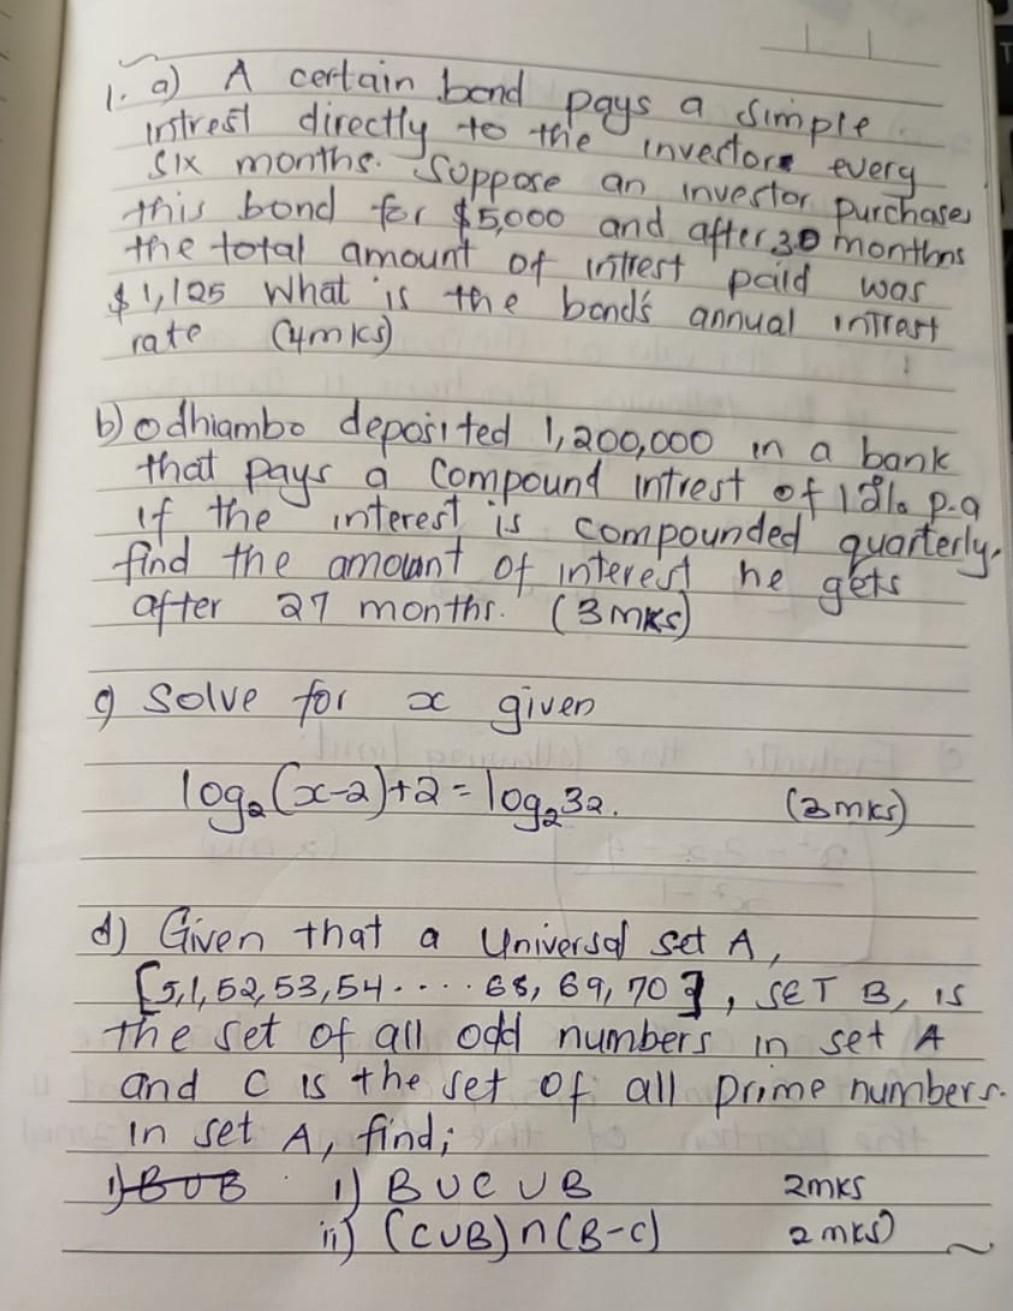 1. a) A certain bond pays a simple
intrest directly to the investors every
six months. Suppose an investor purchases
this bond for $5,000 and after 30 months
the total amount of intrest paid was
$1,125 What is the bond's annual intrest
rate (4mks)
b) odhiambo deposited 1,200,000 in a bank
that pays a compound intrest of 12% p.a
if the interest is compounded quarterly,
find the amount of interest he gets
after 27 months. (3mks)
c) Solve for x given
log₂(x-2)+2=log₂32. (3mks)
d) Given that a Universal set A,
[5,1,52,53,54.....68,69,70}, SET B, is
the set of all odd numbers in set A
and C is the set of all prime numbers.
in set A, find;
i) B U B i) B U C U B 2mks
ii) (CUB)∩(B-C) 2mks)